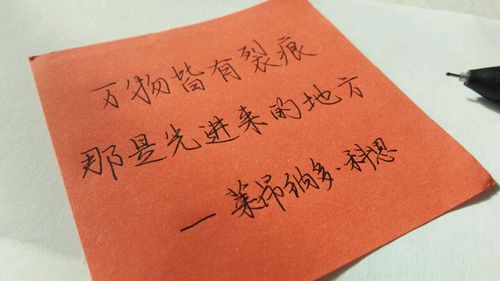 万物皆有裂痕
那是光进来的地方
—莱昂纳多·科恩